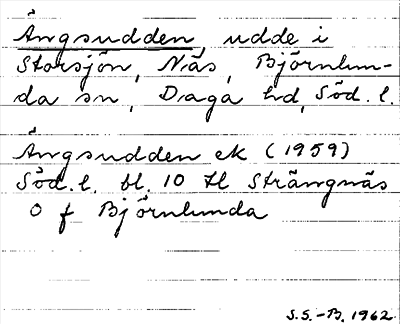 Ängsudden, udde i
Storsjön, Näs, Björnlun-
da sn, Daga hd, Söd. l.
Ängsudden ek (1959)
Söd. l. bl. 10 tl Strängnäs
O f Björnlunda
S.S.-B. 1962